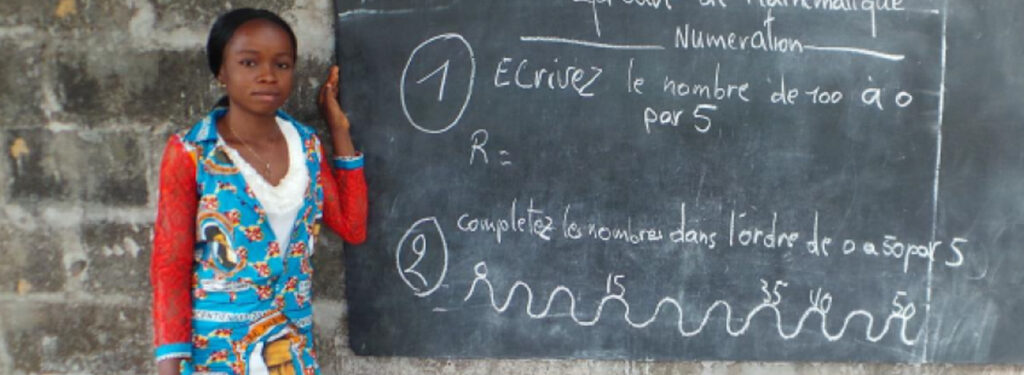 de Mathématique
Numération
1 Ecrivez le nombre de 100 à 0
par 5
R =
2 completez les nombres dans l'ordre de 0 a 50 par 5
0 15 35 40 50